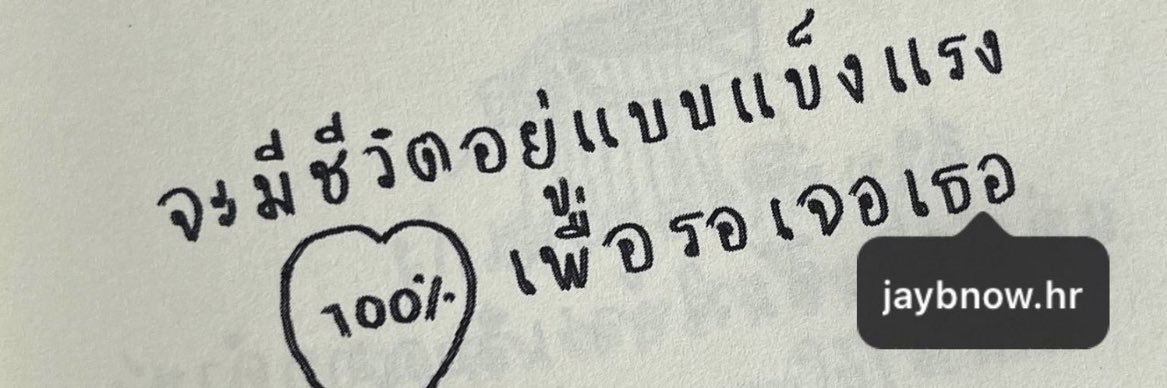 จะมีชีวิตอยู่แบบแข็งแรง
เพื่อรอเจอเธอ
100%
jaybnow.hr